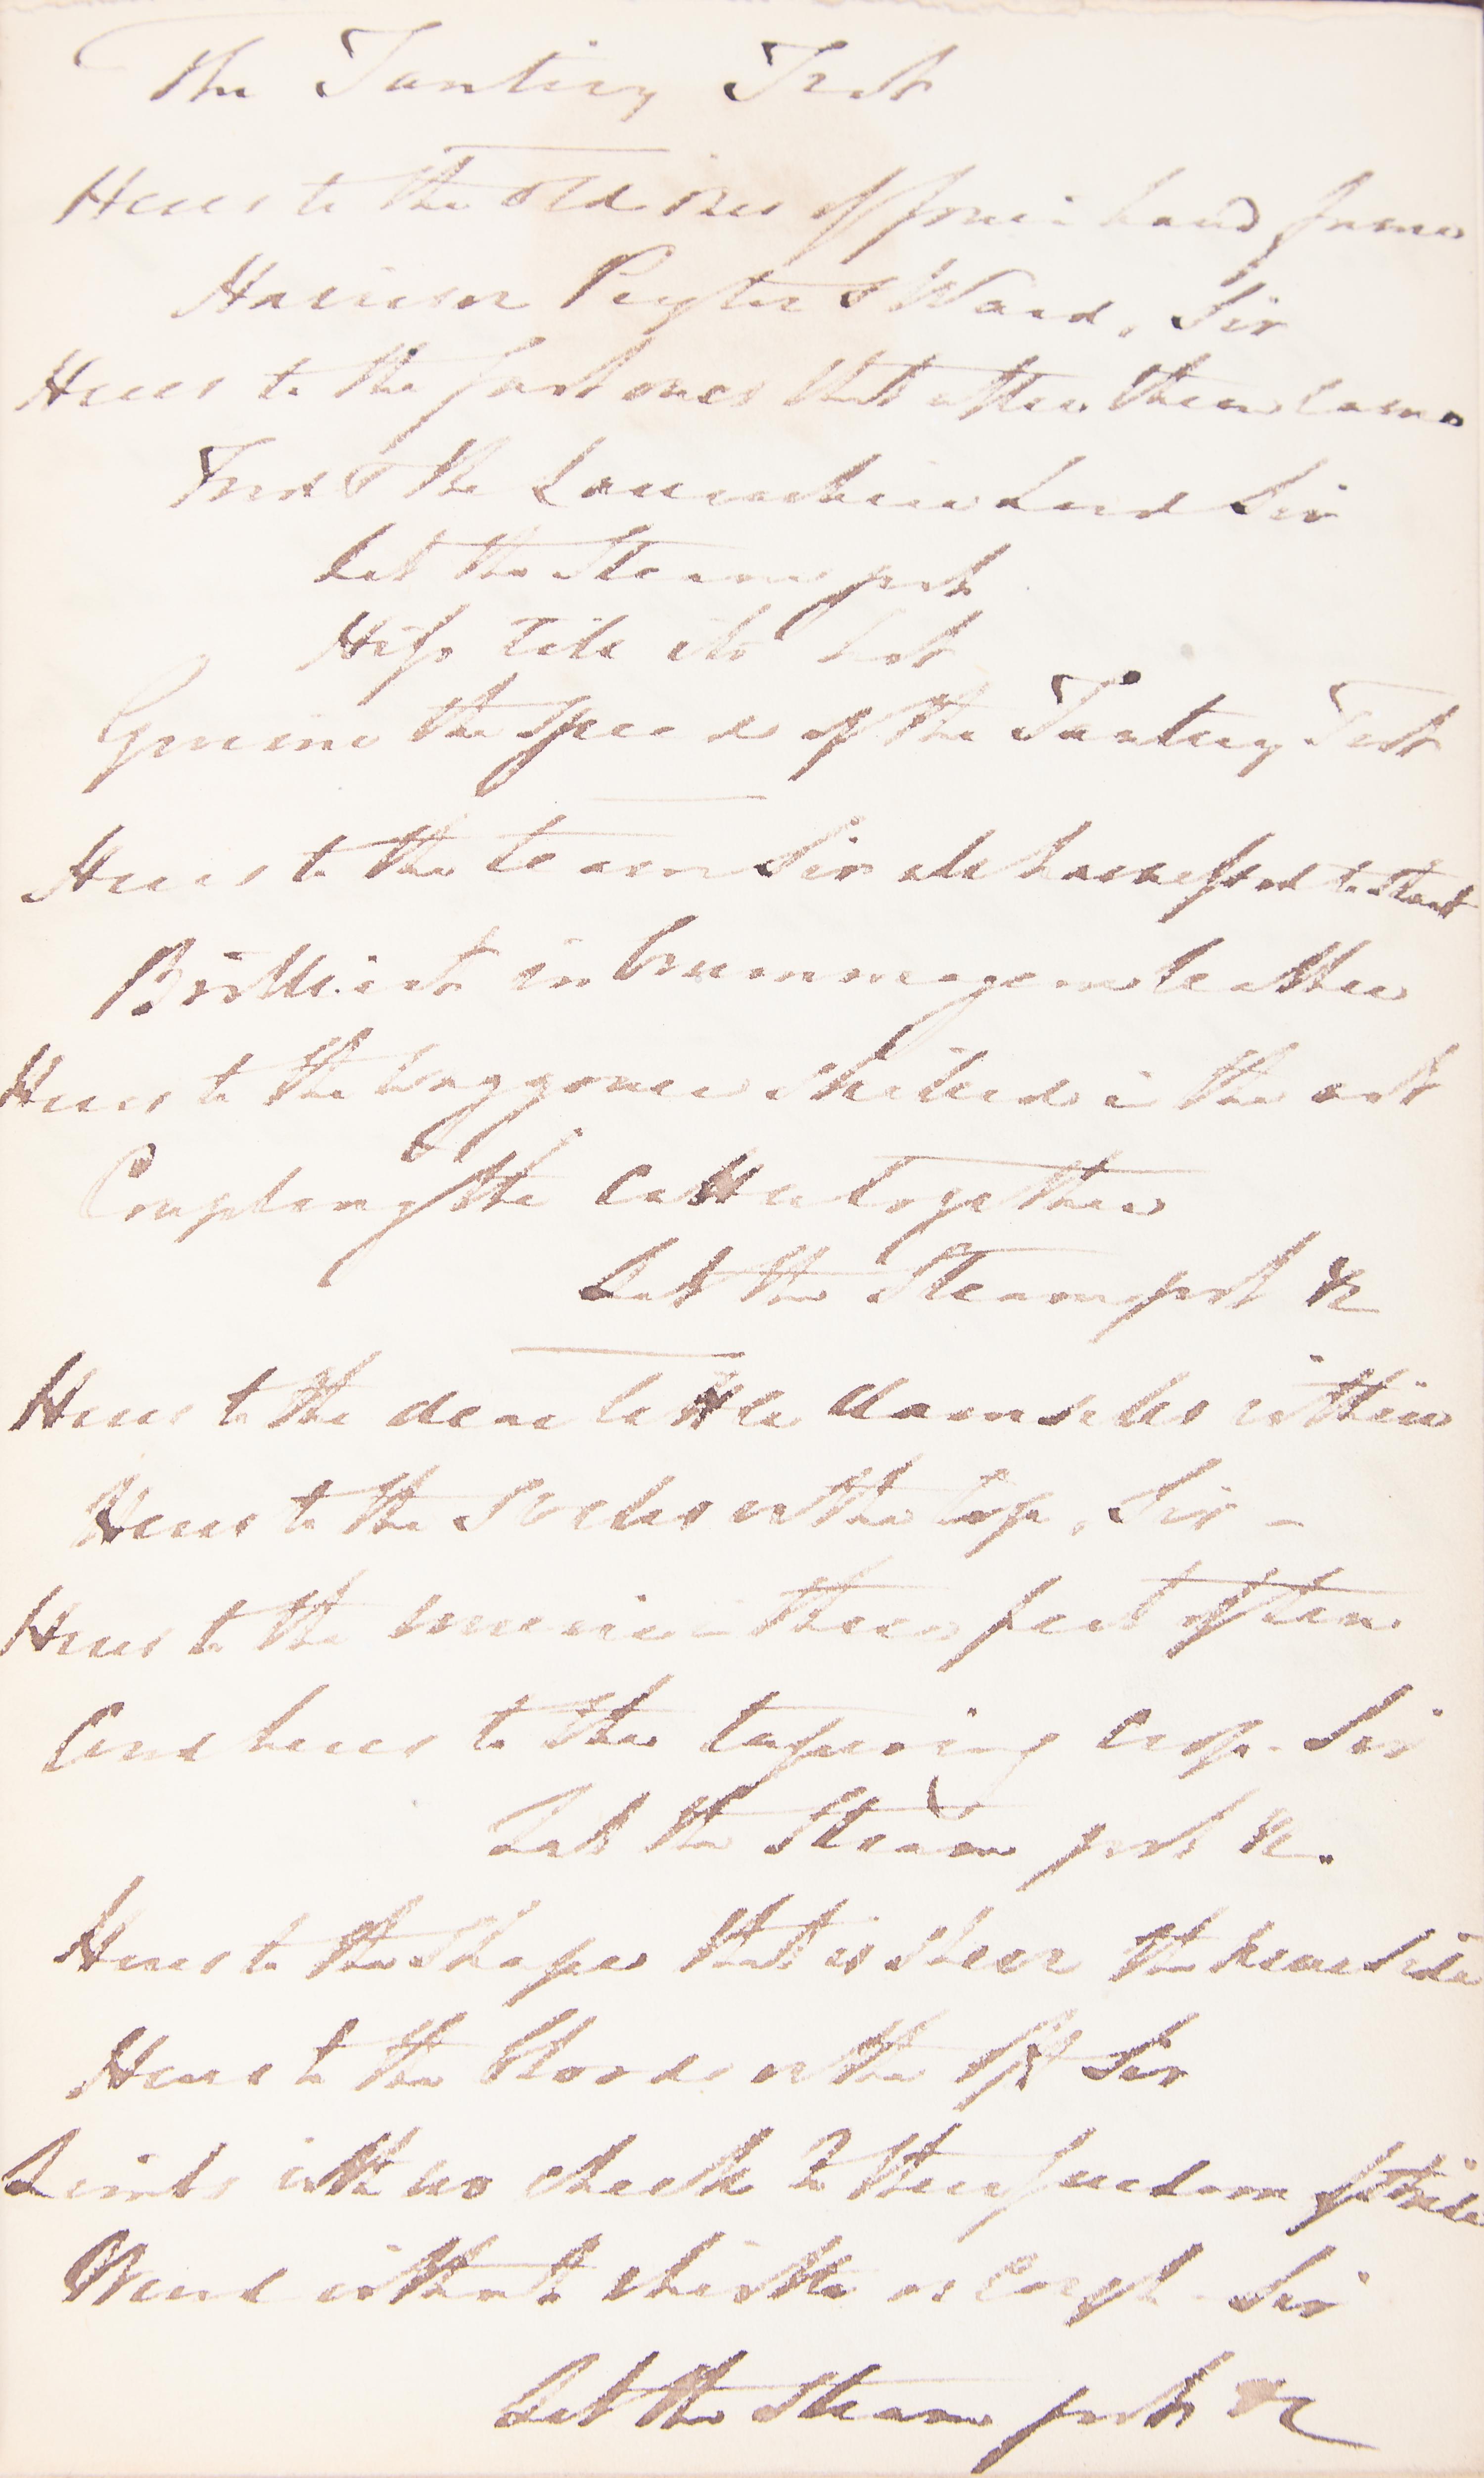 The Tantivy Trot
Heres to the old ones of four in hand fame
Harrison Peyton & Ward, Sir
Heres to the fast ones that after them came
Ford & the Lancashire Lad Sir
Let the Steam pot
Hiss till its hot
Give me the speed of the Tantivy Trot
Heres to the team Sir all harnessed to Start
Brilliant in brummagem leather
Heres to the waggoner skilled i the art
Coupling the cattle together
Let the Steampot &c
Heres to the dear little damsels within
Heres to the Swells on the top, Sir -
Heres to the music in three feet of tin
And heres to the tapering crop. Sir
Let the Steam pot &c.
Heres to the shape that is shown the near side
Heres to the blood on the off Sir
Limbs with no check to their freedom of stride
Wind without whistle or Cough Sir
Let the Steam pot &c